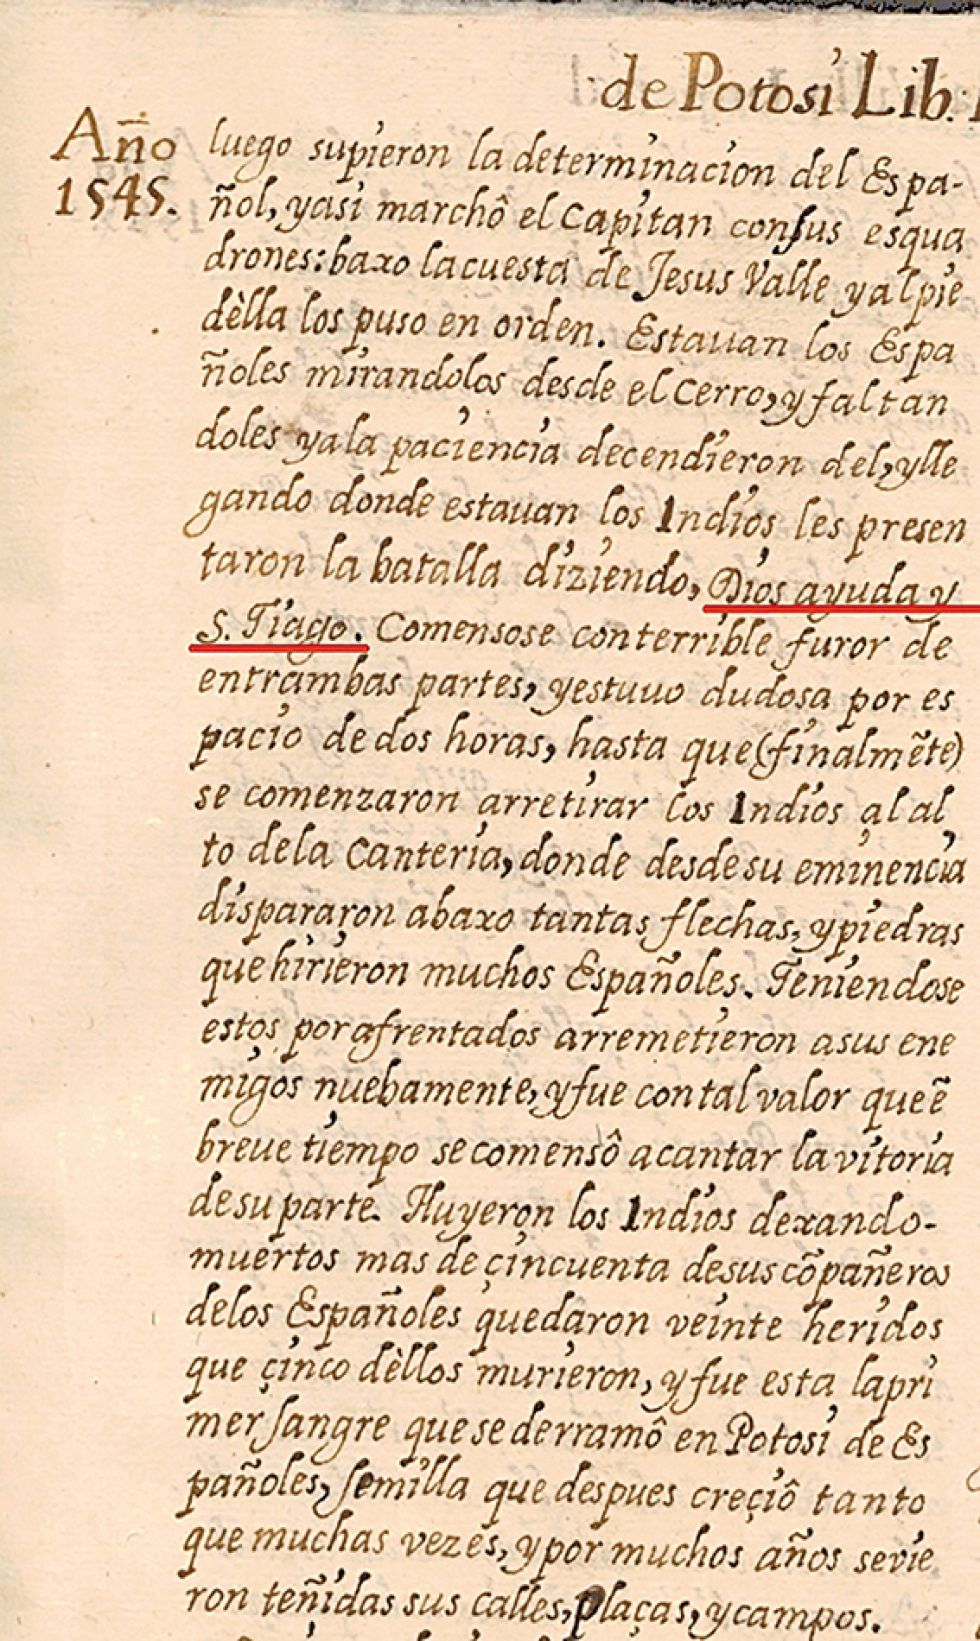 de Potosi Lib.
Año
1545.
luego supieron la determinacion del Espa-
ñol, y asi marchô el Capitan con sus esqua
drones: baxo la cuesta de Jesus Valle y al pie
dèlla los puso en orden. Estauan los Espa
ñoles mirandolos desde el Cerro, y faltan
doles ya la paciencia decendieron del, y lle
gando donde estauan los Indios les presen
taron la batalla diziendo, Dios ayuda y
S. Tiago. Comensose con terrible furor de
entrambas partes, y estuuo dudosa por es
pacio de dos horas, hasta que (finalmẽte)
se comenzaron arretirar los Indios al al
to de la Canteria, donde desde su eminencia
dispararon abaxo tantas flechas, y piedras
que hirieron muchos Españoles. Teniendose
estos por afrentados arremetieron a sus ene
migos nuebamente, y fue con tal valor que ẽ
breue tiempo se comensô a cantar la vitoria
de su parte. Huyeron los Indios dexando-
muertos mas de çincuenta de sus cõpañeros
de los Españoles quedaron veinte heridos
que çinco dèllos murieron, y fue esta la pri
mer sangre que se derramô en Potosi de Es
pañoles, semilla que despues creçiô tanto
que muchas vezes, y por muchos años sevie
ron teñidas sus calles, plaças, y campos.